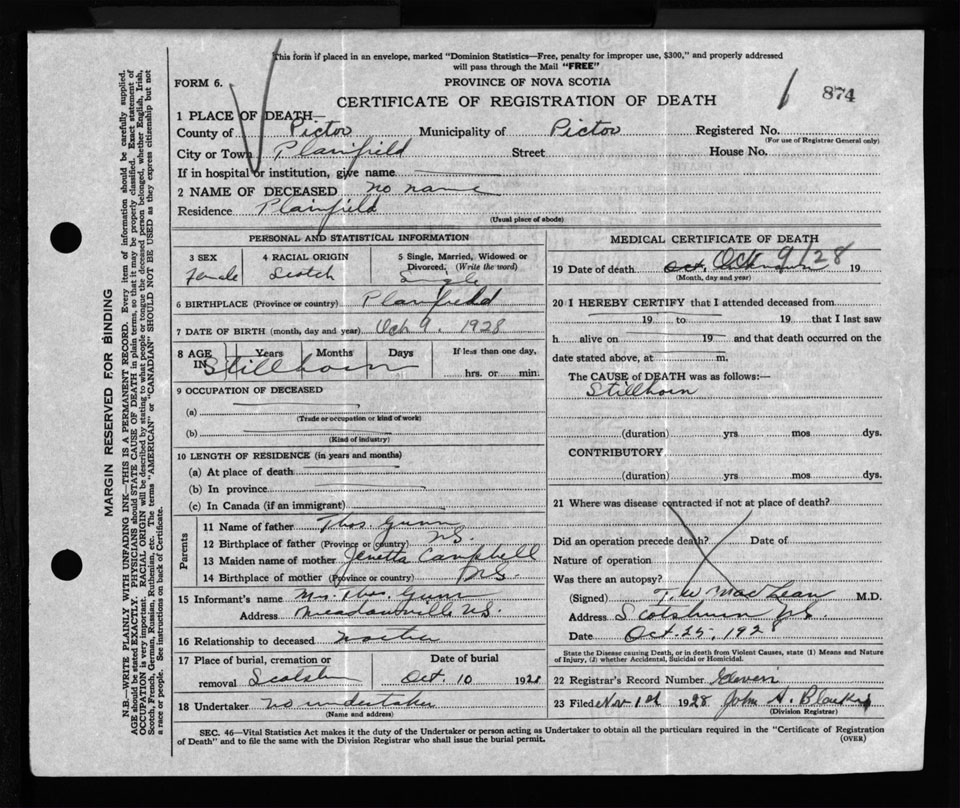 This form if placed in an envelope, marked "Dominion Statistics—Free, penalty for improper use, $300," and properly addressed
will pass through the Mail "FREE"
FORM 6.
PROVINCE OF NOVA SCOTIA
874
CERTIFICATE OF REGISTRATION OF DEATH
1 PLACE OF DEATH—
County of Pictou Municipality of Pictou Registered No.
(For use of Registrar General only)
City or Town Plainfield Street House No.
If in hospital or institution, give name
2 NAME OF DECEASED no name
Residence Plainfield
(Usual place of abode)
PERSONAL AND STATISTICAL INFORMATION
3 SEX 4 RACIAL ORIGIN 5 Single, Married, Widowed or
Divorced. (Write the word)
Female Scotch Single
6 BIRTHPLACE (Province or country) Plainfield
7 DATE OF BIRTH (month, day and year) Oct 9, 1928
8 AGE Years Months Days If less than one day,
IN Stillborn hrs. or min.
9 OCCUPATION OF DECEASED
(a)
(Trade or occupation or kind of work)
(b)
(Kind of industry)
10 LENGTH OF RESIDENCE (in years and months)
(a) At place of death
(b) In province
(c) In Canada (if an immigrant)
Parents
11 Name of father Thos. Gunn
12 Birthplace of father (Province or country) N.S.
13 Maiden name of mother Jenetta Campbell
14 Birthplace of mother (Province or country) N.S.
15 Informant's name Mrs. Thos. Gunn
Address Meadowville N.S.
16 Relationship to deceased
17 Place of burial, cremation or Date of burial
removal Oct. 10 1928
18 Undertaker no undertaker
(Name and address)
MEDICAL CERTIFICATE OF DEATH
19 Date of death Oct. Oct 9/28 19
(Month, day and year)
20 I HEREBY CERTIFY that I attended deceased from
19 to 19 that I last saw
h alive on 19 and that death occurred on the
date stated above, at m.
The CAUSE of DEATH was as follows:—
Stillborn
(duration) yrs mos dys.
CONTRIBUTORY
(duration) yrs mos dys.
21 Where was disease contracted if not at place of death?
Did an operation precede death? Date of
Nature of operation
Was there an autopsy?
(Signed) T. W. MacLean M.D.
Address Scotsburn N.S.
Date Oct. 25, 1928
State the Disease causing Death, or in death from Violent Causes, state (1) Means and Nature
of Injury, (2) whether Accidental, Suicidal or Homicidal.
22 Registrar's Record Number Eleven
23 Filed Nov 1st 1928 John A.
(Division Registrar)
SEC. 46—Vital Statistics Act makes it the duty of the Undertaker or person acting as Undertaker to obtain all the particulars required in the "Certificate of Registration
of Death" and to file the same with the Division Registrar who shall issue the burial permit.
(OVER)
MARGIN RESERVED FOR BINDING
N.B.—WRITE PLAINLY WITH UNFADING INK—THIS IS A PERMANENT RECORD. Every item of information should be carefully supplied.
AGE should be stated EXACTLY. PHYSICIANS should STATE CAUSE OF DEATH in plain terms, so that it may be properly classified. Exact statement of
OCCUPATION is very important. RACIAL ORIGIN will be described by stating to what people or tongue the deceased person belonged, whether English, Irish,
Scotch, French, German, Russian, Ruthenian, etc. The terms "AMERICAN" or "CANADIAN" SHOULD NOT BE USED as they express citizenship but not
a race or people. See instructions on back of Certificate.